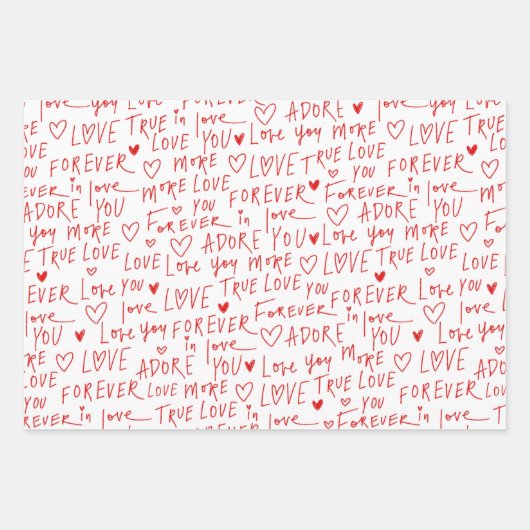 love you Love FOREVER in love ADORE YOU Love you
MORE LOVE TRUE in love YOU Love you MORE LOVE TRUE LOVE
LOVE YOU FOREVER MORE LOVE FOREVER YOU FOREVER
FOREVER in love MORE LOVE FOREVER in love
ADORE YOU FOREVER in love ADORE YOU Love you MORE
Love you MORE LOVE ADORE YOU Love you MORE LOVE
TRUE LOVE YOU Love you MORE LOVE TRUE LOVE YOU
FOREVER Love YOU LOVE TRUE LOVE YOU FOREVER
love LOVE FOREVER FOREVER in love
YOU Love you FOREVER in love ADORE YOU
MORE LOVE ADORE in love YOU Love you MORE LOVE ADORE
LOVE YOU FOREVER LOVE MORE LOVE TRUE LOVE YOU FOREVER
FOREVER in love TRUE LOVE in love FOREVER in love